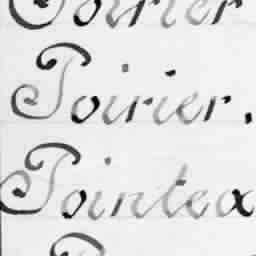 Poirier
Poirier.
Pointea